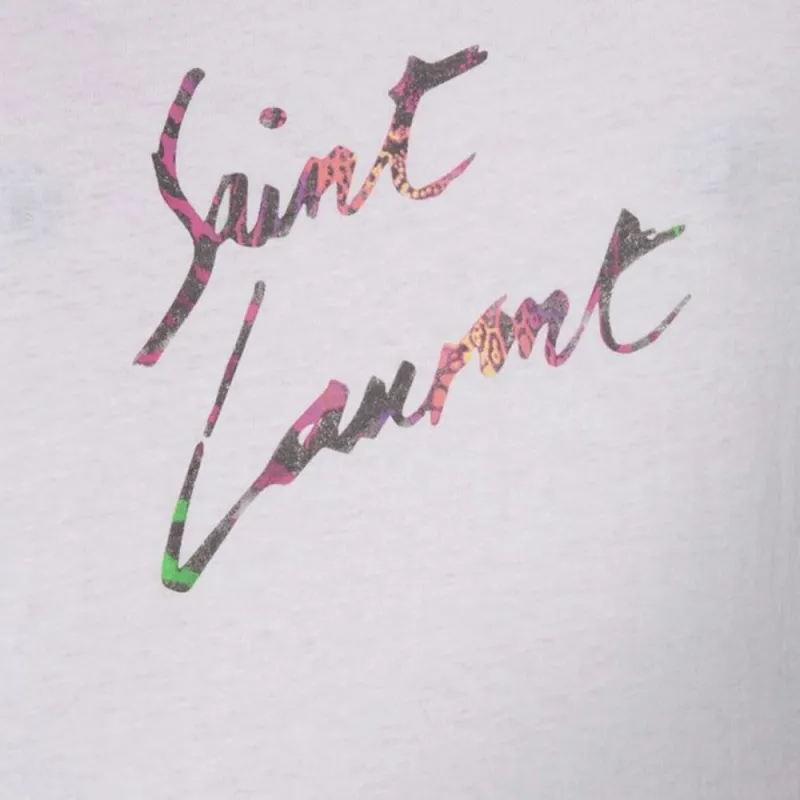 Saint
Laurent